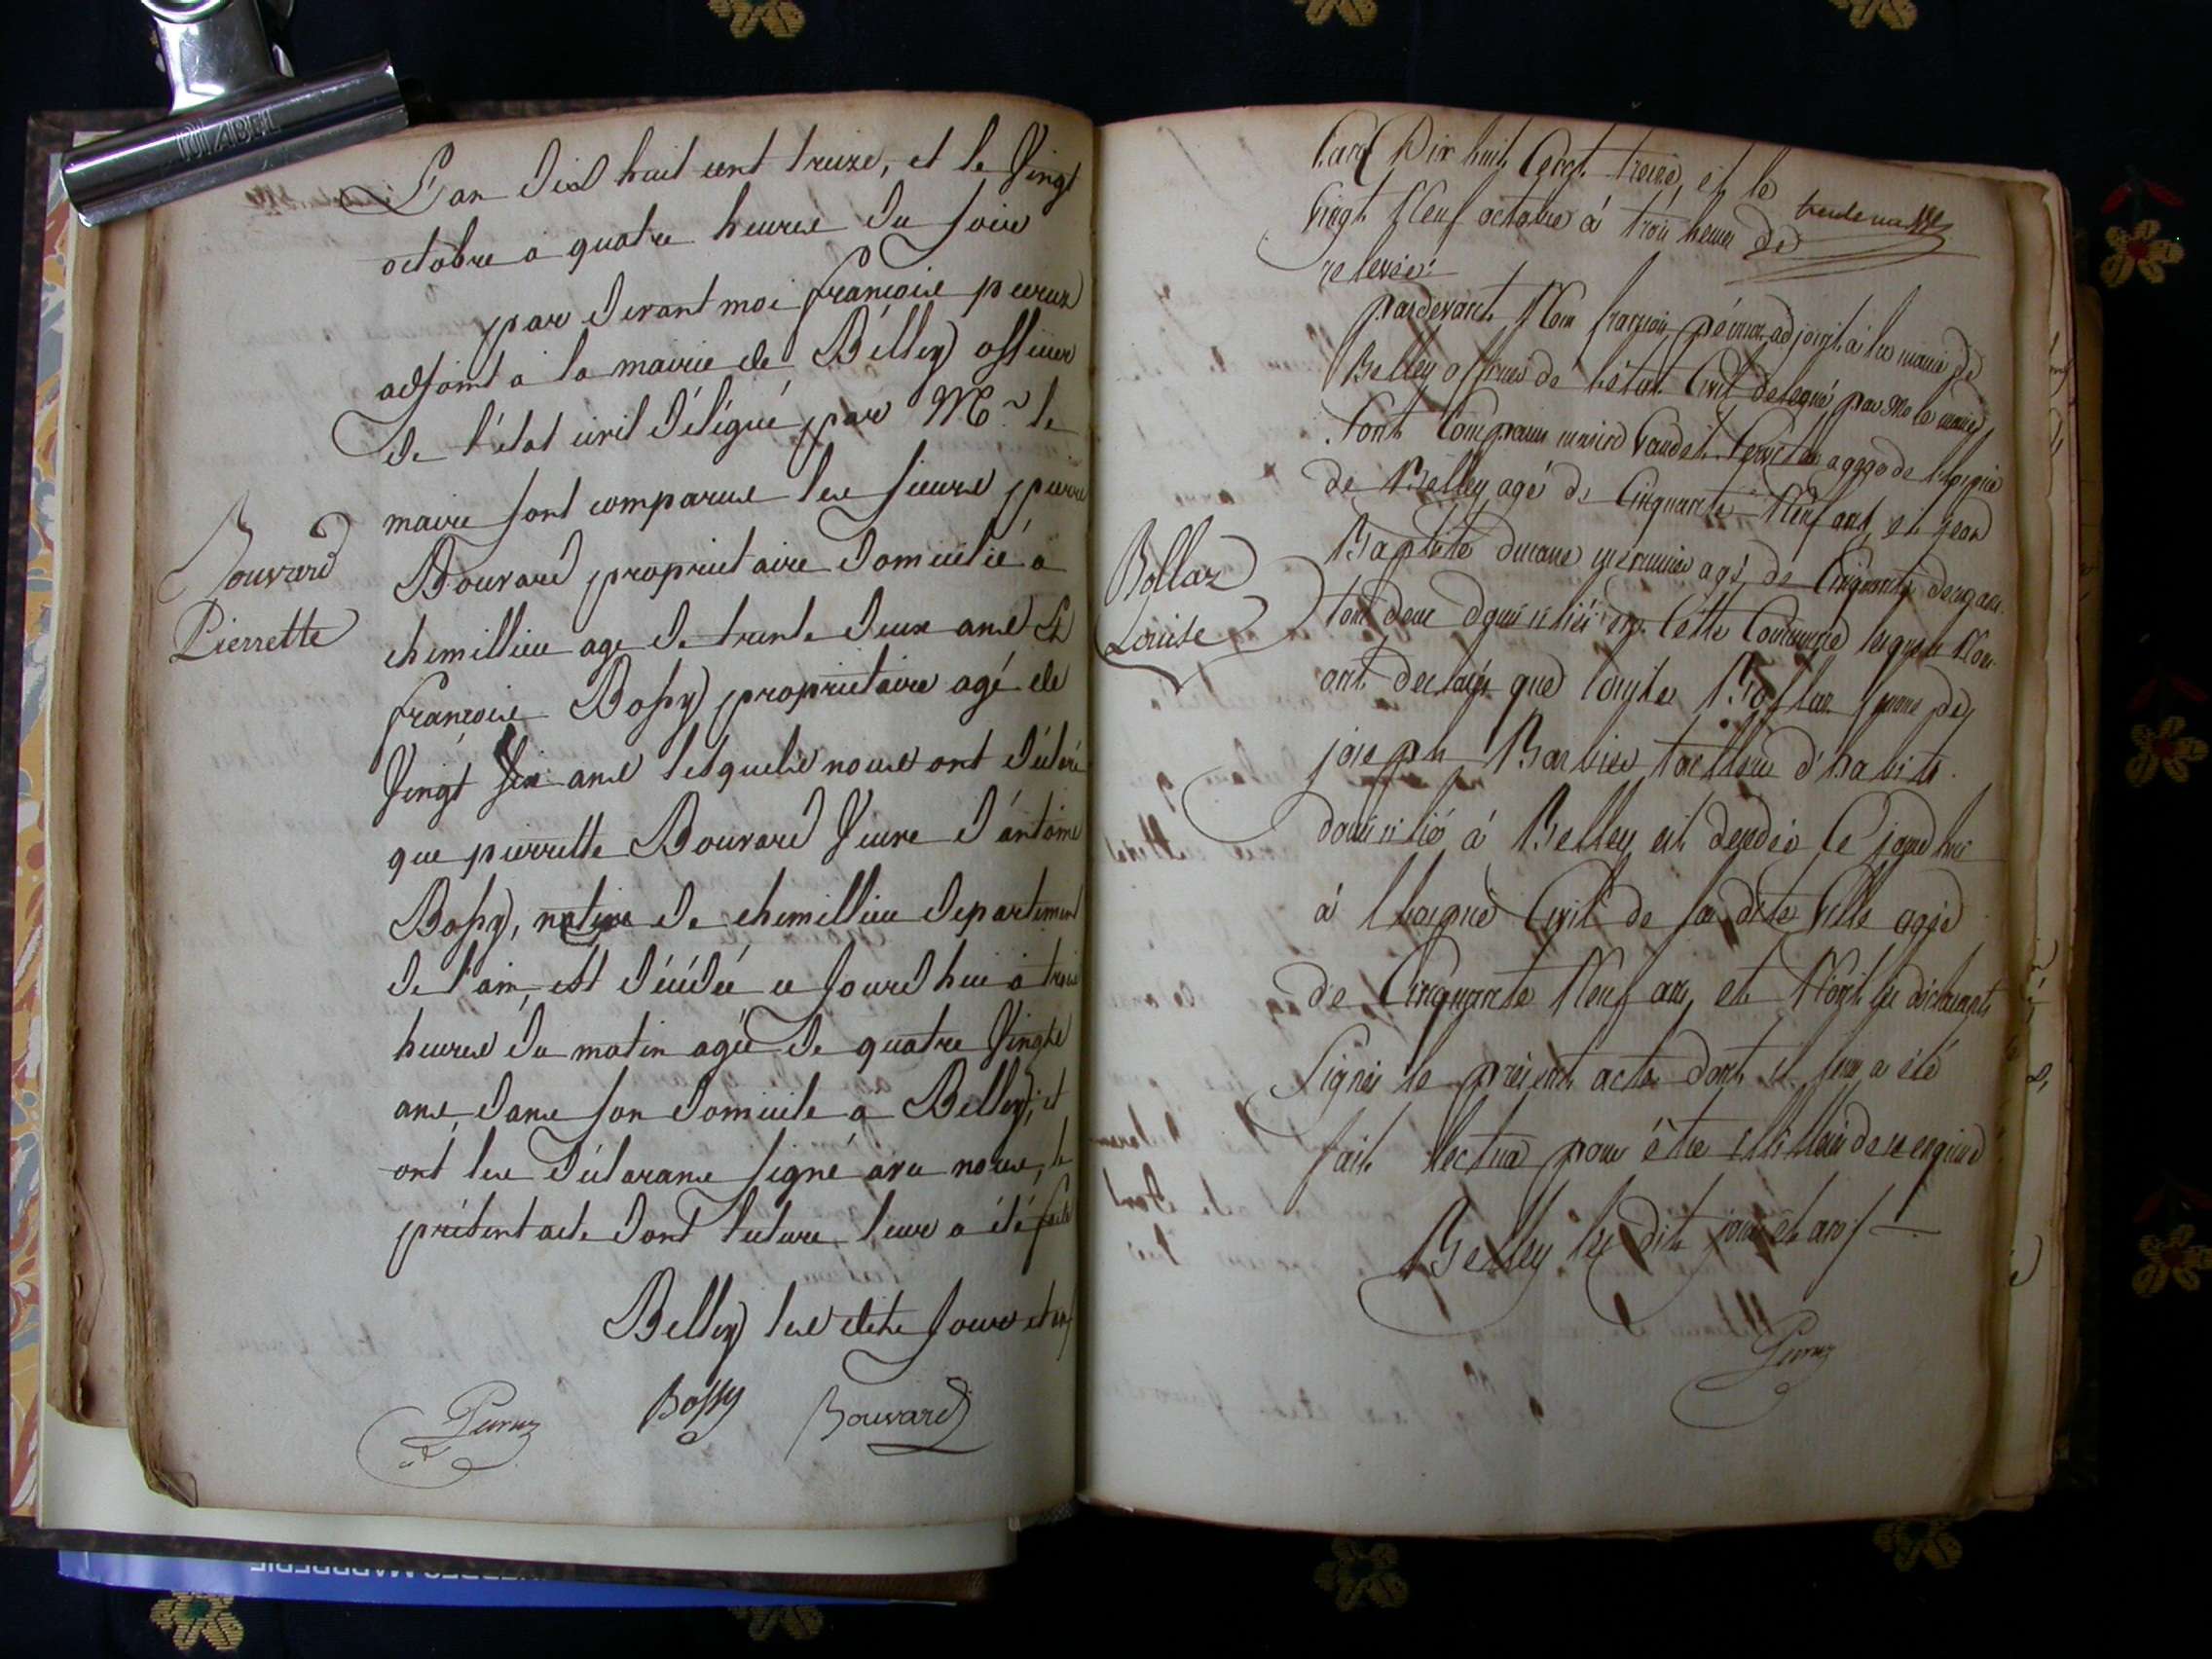 L'an dixl huit cent treize, et le Vingt
octobre a quatre heures du soir
par devant moi françoise peeruz
adjoint a la mairie de Belley officier
de l'état civil délégué par Mr. le
maire sont comparus les sieurs pierre
Bouvard propriétaire domicilié a
chemillieu age de trente deux ans Et
françois Bossy propriétaire agé de
Vingt six ans lesquels nous ont déclaré
que pierrette Bouvard Veuve d'antoine
Bossy, native de chemillieu departement
de l'ain, est décédée ce jourd hui a trois
heures du matin agée de quatre Vingts
ans dans son domicile a Belley, et
ont les déclarans signé avec nous, le
présent acte dont lecture leur a été faite
Belley les dits jour et an
Peruz
Bossy
Bouvard
Bouvard
Pierrette
L'an Dix huit Cent treize, et le
Vingt Neuf octobre à trois heures de
relevée
pardevant Nous françois péruz adjoint à la mairie de
Belley officier de l'état Civil délegué par Mr le maire
Sont Comparus Vaudet
de Belley agé de Cinquante Neuf ans, et jean
Baptiste agé de Cinquante deux ans
tous deux domiciliés en Cette Commune lesquels Nous
ont declaré que Louise Bollaz femme de
joseph Barbier tailleur d'habits
domicilié à Belley est décédée Ce jourd hui
à l'hospice Civil de la dite Ville agée
de Cinquante Neuf ans et N'ont les déclarants
Signés le présent acte dont il leur a été
fait lecture pour être
Belley les dits jour et an
Peruz
Bollaz
Louise
DIABEL